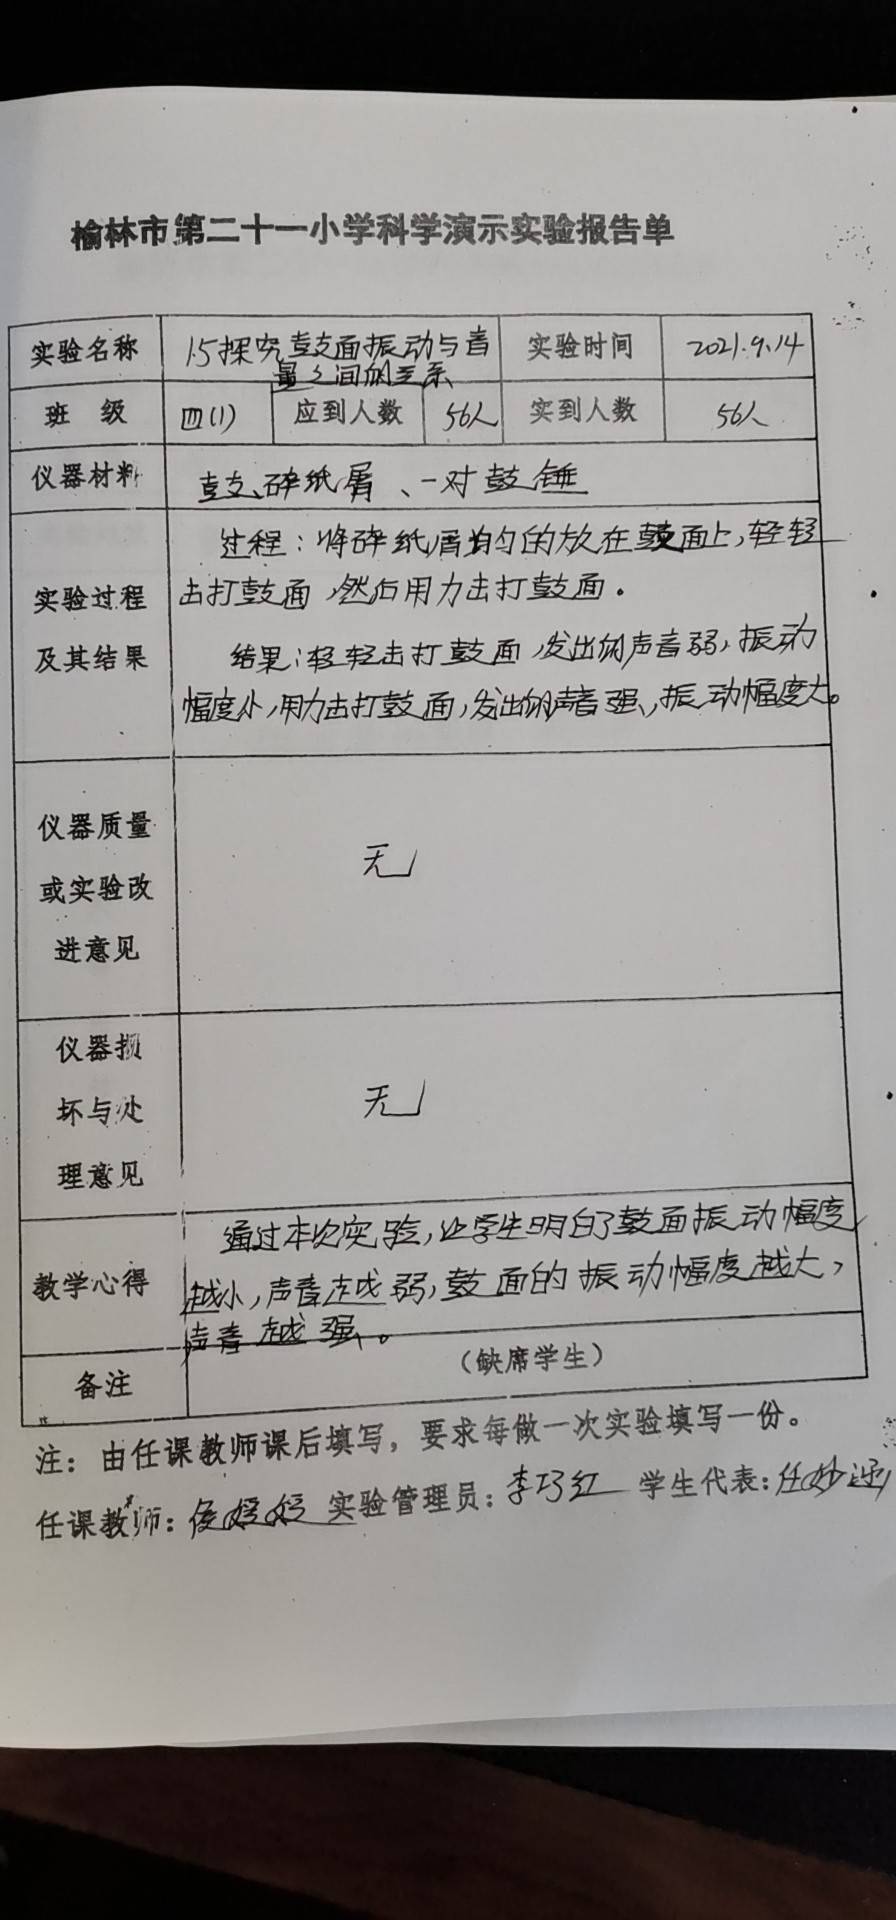 榆林市第二十一小学科学演示实验报告单
实验名称 1.5探究鼓面振动与音 实验时间 2021.9.14
量之间的关系
班 级 四(1) 应到人数 56人 实到人数 56人
仪器材料 鼓、碎纸屑、一对鼓锤
过程：将碎纸屑均匀的放在鼓面上,轻轻
实验过程 击打鼓面,然后用力击打鼓面。
及其结果 结果:轻轻击打鼓面,发出的声音弱,振动
幅度小,用力击打鼓面,发出的声音强,振动幅度大。
仪器质量
或实验改 无
进意见
仪器损
坏与处 无
理意见
通过本次实验,让学生明白了鼓面振动幅度
教学心得 越小,声音越弱,鼓面的振动幅度越大,
声音越强。
备注 （缺席学生）
注：由任课教师课后填写，要求每做一次实验填写一份。
任课教师：侯婷婷 实验管理员：李巧红 学生代表：任妙